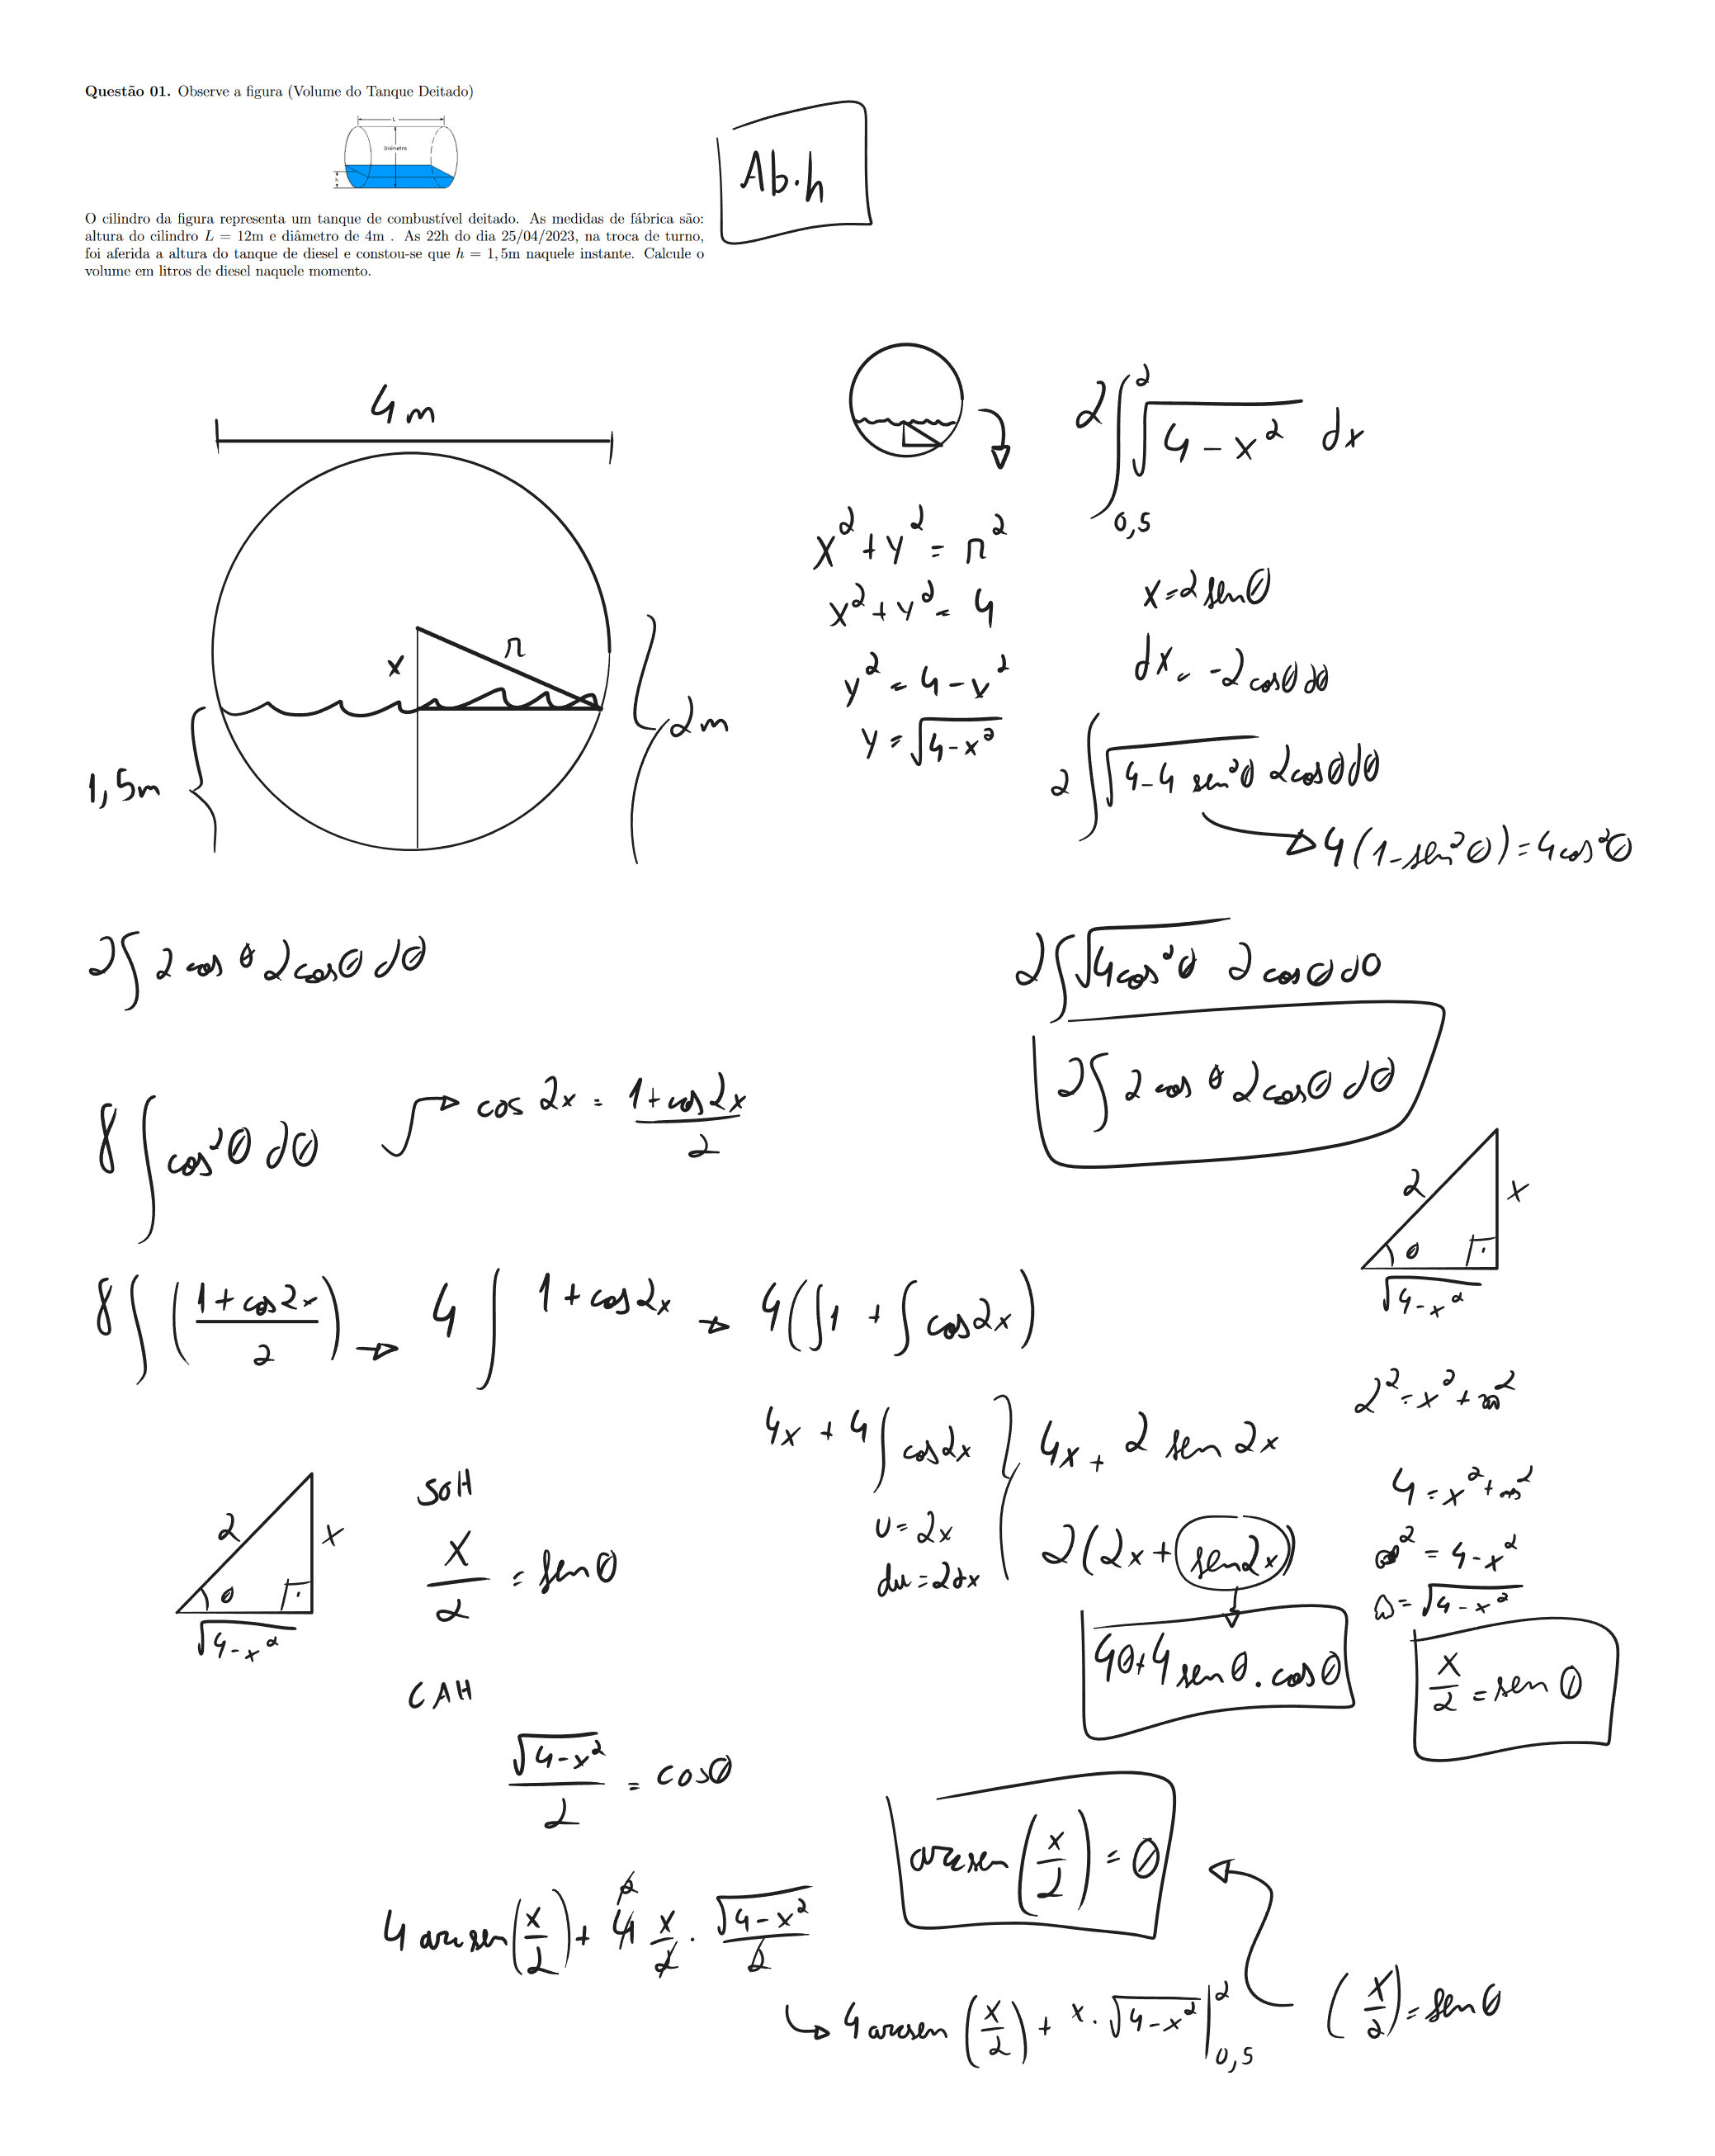 Questão 01. Observe a figura (Volume do Tanque Deitado)
L
Diâmetro
h
O cilindro da figura representa um tanque de combustível deitado. As medidas de fábrica são:
altura do cilindro L = 12m e diâmetro de 4m . As 22h do dia 25/04/2023, na troca de turno,
foi aferida a altura do tanque de diesel e constou-se que h = 1, 5m naquele instante. Calcule o
volume em litros de diesel naquele momento.
Ab.h
4m
x
r
1,5m
2m
x² + y² = r²
x² + y² = 4
y² = 4 - x²
y = √(4-x²)
2∫_{0,5}^{2} √(4-x²) dx
x = 2 sen θ
dx = -2 cos θ dθ
2∫√(4-4 sen²θ) 2cos θ dθ
4(1-sen²θ) = 4cos²θ
2∫ 2 cos θ 2 cos θ dθ
2∫√(4cos²θ) 2 cos θ dθ
2∫ 2 cos θ 2 cos θ dθ
8∫cos²θ dθ
cos 2x = (1+cos 2x)/2
2
x
θ
√(4-x²)
8∫((1+cos 2x)/2) → 4∫ 1+cos 2x → 4(∫1 + ∫cos 2x)
4x + 4∫cos 2x
u = 2x
du = 2dx
4x + 2 sen 2x
2(2x + sen 2x)
4θ+4 sen θ . cos θ
4 = x² +
= 4-x²
= √(4-x²)
x/2 = sen θ
2
x
θ
√(4-x²)
SOH
x/2 = sen θ
CAH
√(4-x²)/2 = cos θ
arcsen(x/2) = θ
4 arcsen(x/2) + 4 x/2 . √(4-x²)/2
4 arcsen(x/2) + x.√(4-x²) |_{0,5}^{2}
(x/2) = sen θ